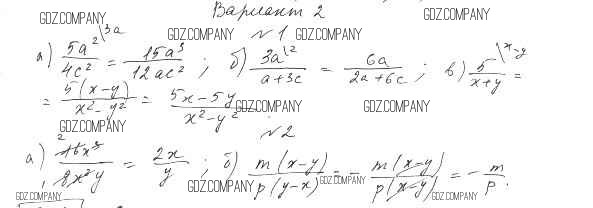 Вариант 2
GDZ.COMPANY GDZ.COMPANY
GDZ.COMPANY № 1 GDZ.COMPANY
а) 5a²\3a / 4c² = 15a³ / 12ac² ; б) 3a\2 / a+3c = 6a / 2a+6c ; в) 5\x-y / x+y =
= 5(x-y) / x²-y² = 5x-5y / x²-y² GDZ.COMPANY GDZ.COMPANY
GDZ.COMPANY № 2
а) 2 16x³ / 1 8x²y = 2x / y ; б) m(x-y) / p(y-x) = - m(x-y) / p(x-y) = - m / p.
GDZ.COMPANY GDZ.COMPANY GDZ.COMPANY GDZ.COMPANY